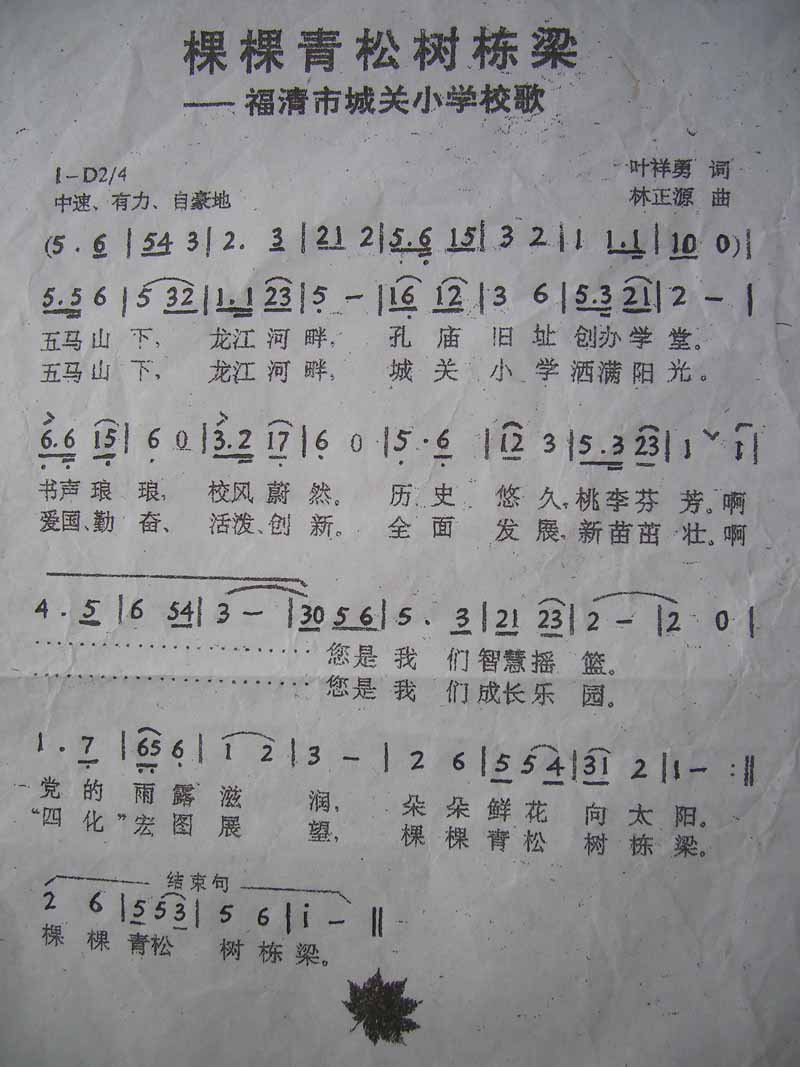 棵棵青松树栋梁
——福清市城关小学校歌
1=D2/4 叶祥勇 词
中速、有力、自豪地 林正源 曲
(5. 6 | 54 3 | 2. 3 | 21 2 | 5.6 15 | 3 2 | 1 1.1 | 10 0) |
5.5 6 | 5 32 | 1.1 23 | 5 — | 16 12 | 3 6 | 5.3 21 | 2 — |
五马山下, 龙江河畔, 孔庙旧址创办学堂。
五马山下, 龙江河畔, 城关小学洒满阳光。
6.6 15 | 6 0 | 3.2 17 | 6 0 | 5. 6 | 12 3 | 5.3 23 | 1 ˅ i |
书声琅琅, 校风蔚然。 历史悠久,桃李芬芳。啊
爱国、勤奋、活泼、创新。 全面发展,新苗茁壮。啊
4. 5 | 6 54 | 3 — | 30 56 | 5. 3 | 21 23 | 2 — | 2 0 |
您是我们智慧摇篮。
您是我们成长乐园。
1. 7 | 65 6 | 1 2 | 3 — | 2 6 | 5 5 4 | 31 2 | 1 — :‖
党的雨露滋润, 朵朵鲜花向太阳。
“四化”宏图展望, 棵棵青松树栋梁。
结束句
2 6 | 5 5 3 | 5 6 | i — ‖
棵棵青松树栋梁。